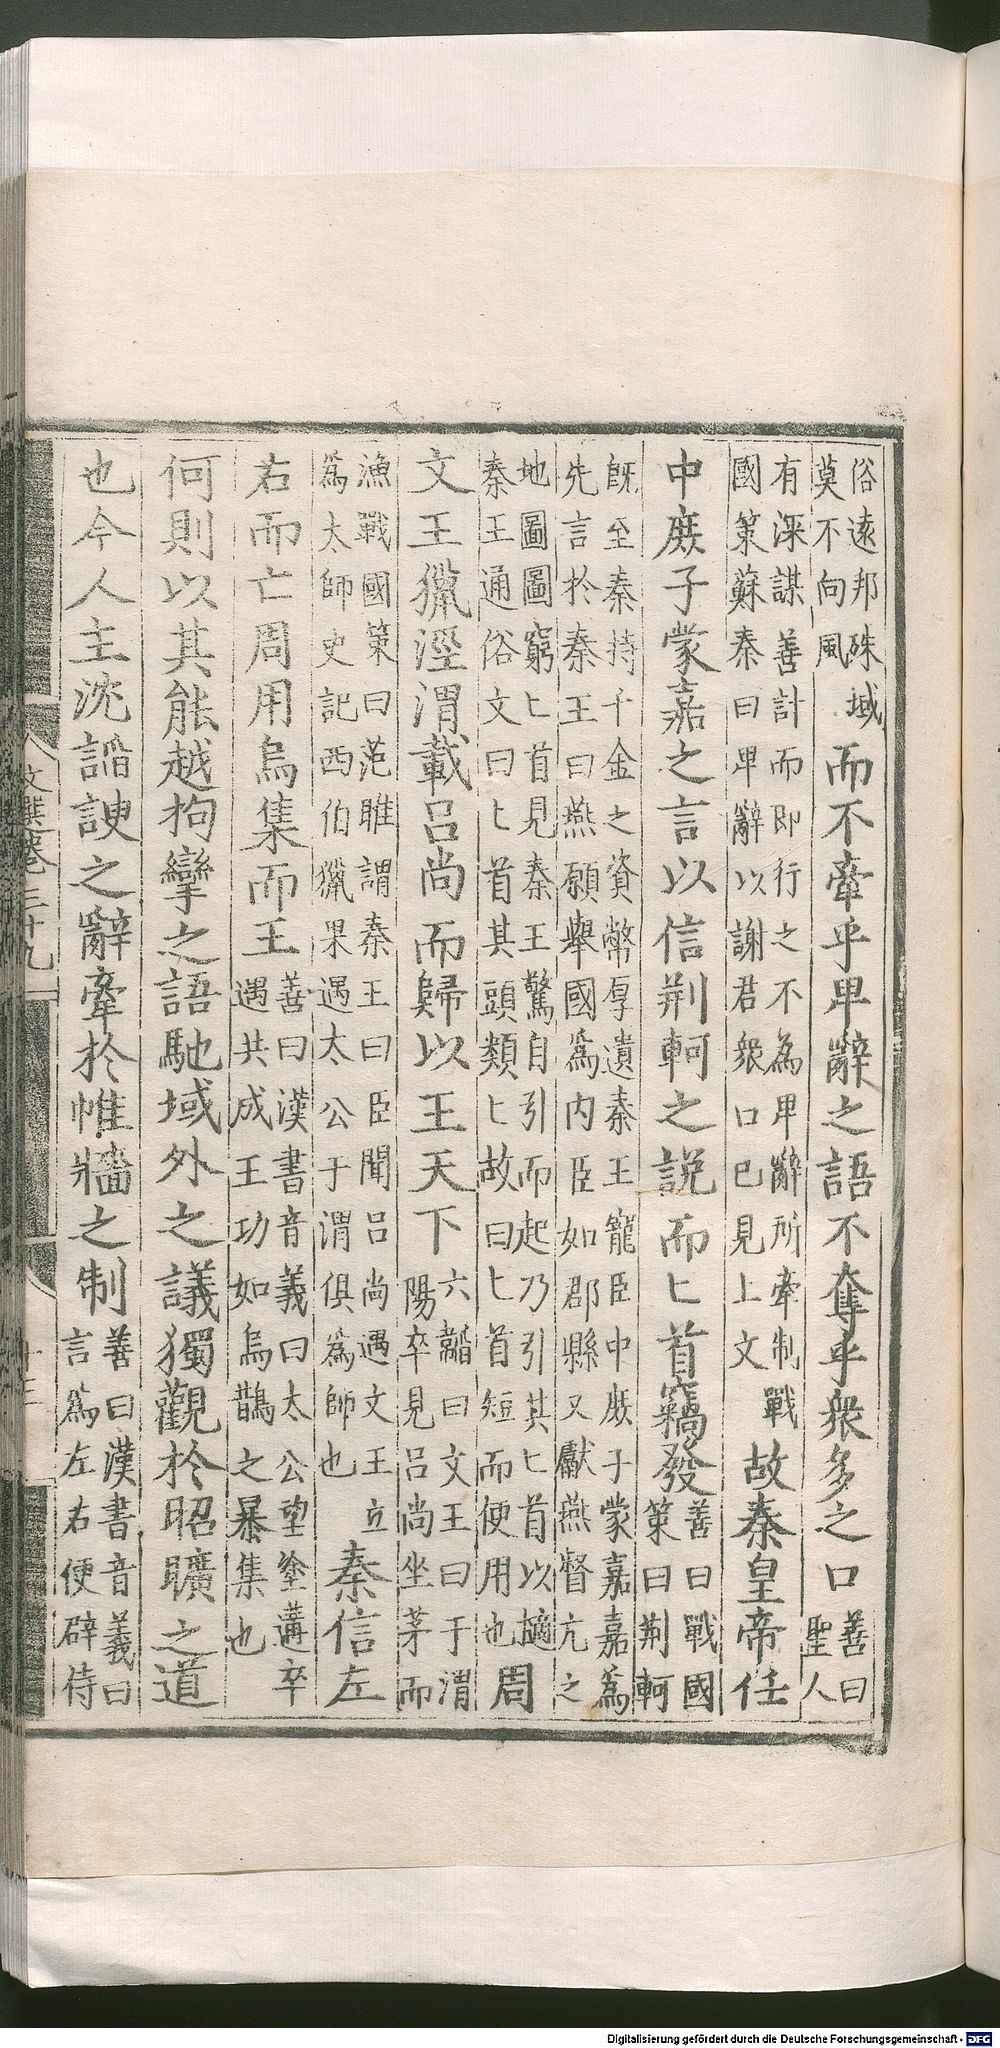 俗遠邦殊域莫不向風而不牽乎卑辭之語不奪乎衆多之口善曰聖人
有深謀善計而即行之不為卑辭所牽制戰國策蘇秦曰卑辭以謝君衆口已見上文故秦皇帝任
中庶子蒙嘉之言以信荆軻之説而匕首竊發善曰戰國策曰荆軻
既至秦持千金之資幣厚遺秦王寵臣中庶子蒙嘉嘉爲先言於秦王曰燕願舉國爲内臣如郡縣又獻燕督亢之
地圖圖窮匕首見秦王驚自引而起乃引其匕首以擿秦王通俗文曰匕首其頭類匕故曰匕首短而便用也周
文王獵涇渭載吕尚而歸以王天下六韜曰文王曰于渭陽卒見吕尚坐茅而
漁戰國策曰范雎謂秦王曰臣聞吕尚遇文王立爲太師史記西伯獵果遇太公于渭俱爲師也秦信左
右而亡周用烏集而王善曰漢書音義曰太公望塗遘卒遇共成王功如烏鵲之暴集也
何則以其能越拘攣之語馳域外之議獨觀於昭曠之道
也今人主沈諂諛之辭牽於帷牆之制善曰漢書音義曰言爲左右便辟侍
文選卷三十九
十三
Digitalisierung gefördert durch die Deutsche Forschungsgemeinschaft - DFG